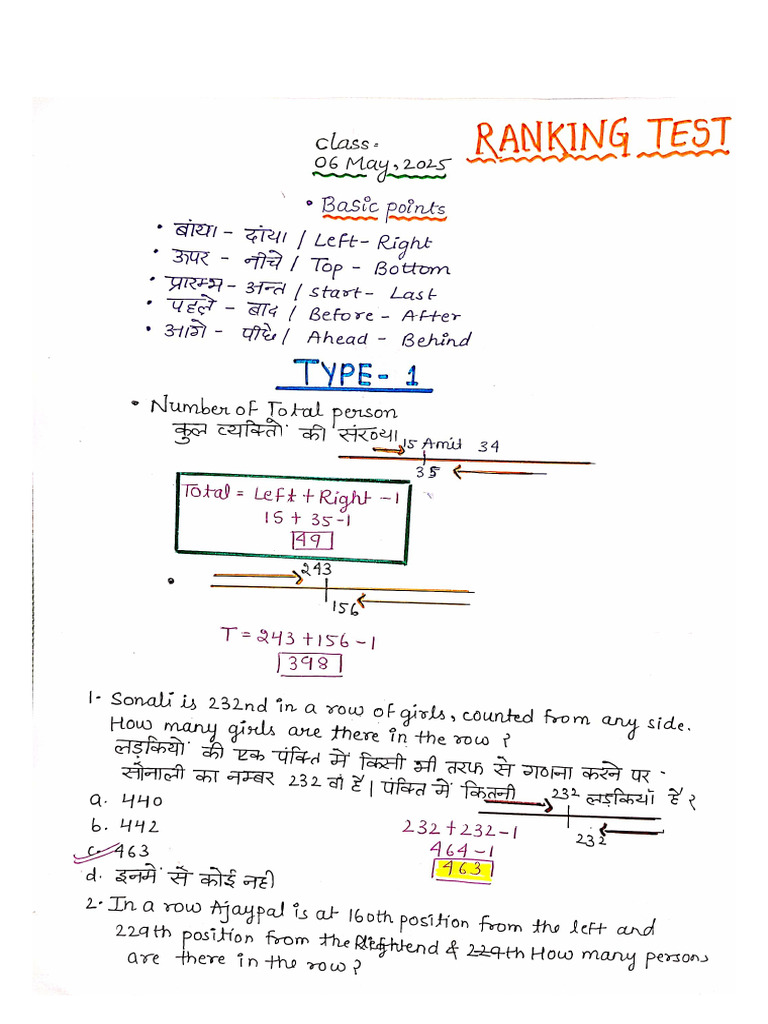 RANKING TEST
Class:
06 May, 2025
• Basic points
• बांया - दांया / Left - Right
• ऊपर - नीचे / Top - Bottom
• प्रारम्भ - अन्त / Start - Last
• पहले - बाद / Before - After
• आगे - पीछे / Ahead - Behind
TYPE - 1
• Number of Total person
कुल व्यक्तिों की संख्या
15 Amit 34
35
Total = Left + Right - 1
15 + 35 - 1
49
• 243
156
T = 243 + 156 - 1
398
1- Sonali is 232nd in a row of girls, counted from any side.
How many girls are there in the row?
लड़कियों की एक पंक्ति में किसी भी तरफ से गणना करने पर
सौनाली का नम्बर 232 वां है। पंक्ति में कितनी लड़कियाँ है?
232
232
a. 440
b. 442
c. 463
d. इनमें सें कोई नही
232 + 232 - 1
464 - 1
463
2- In a row Ajaypal is at 160th position from the left and
229th position from the Right end & 229th How many persons
are there in the row?